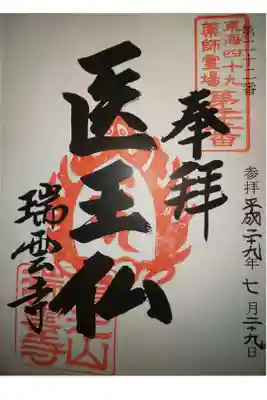 第二十二番
東海四十九
薬師霊場
第二十二番
奉拝
参拝 平成二十九年 七月 二十九日
医王仏
瑞雲寺